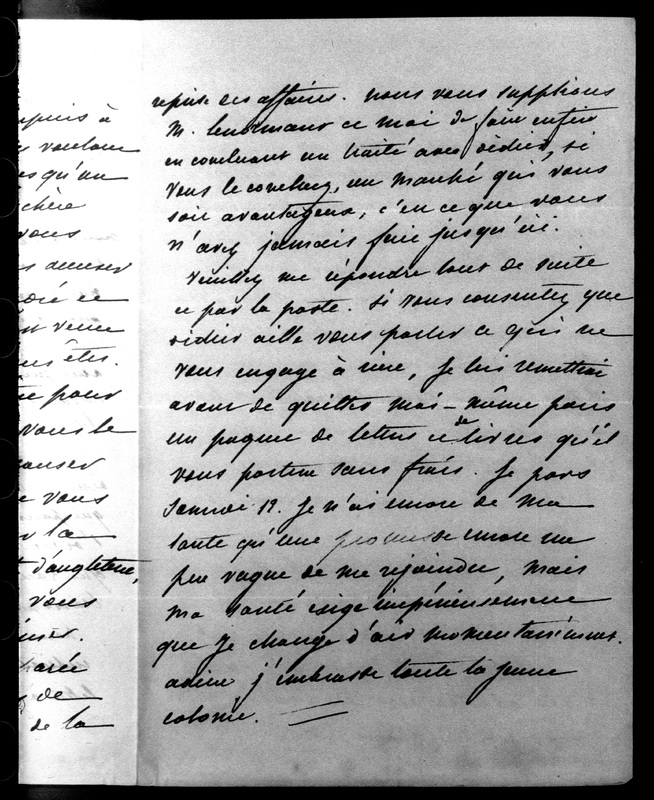 epuis à
voulons
es qu'un
chère
vous
s amuser
est venu
us êtes.
pour
vous le
causer
e vous
r la
d'angleterre,
vous
de
de la
reprise des affaires. nous vous supplions
M. lenormant et moi de faire enfin
en concluant un traité avec didier, si
vous le concluez, un marché qui vous
soit avantageux, c'en ce que vous
n'avez jamais fait jusqu'ici.
veuillez me répondre tout de suite
et par la poste. si vous consentez que
didier aille vous parler ce qui ne
vous engage à rien, je lui remettrai
avant de quitter moi-même paris
un paquet de lettres et de livres qu'il
vous portera sans frais. je pars
samedi 19. je n'ai encore de ma
tante qu'une promesse encore un
peu vague de me rejoindre, mais
ma santé exige impérieusement
que je change d'air momentanément.
adieu j'embrasse toute la jeune
colonie.